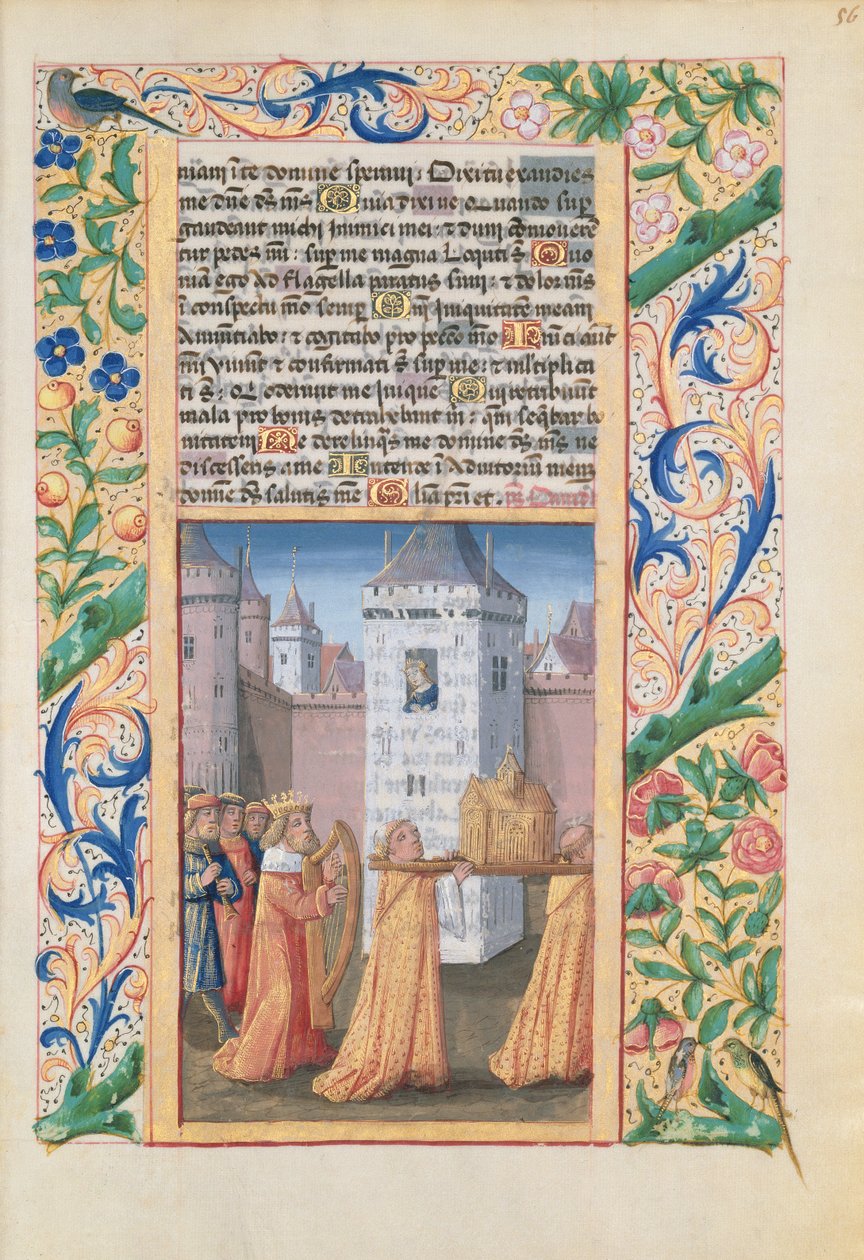 56
niam ī te domine speravi: Dixi tu exaudies
me dn̄e ds̄ ms̄ Quia dixi ne Quando sup̄
gaudeant michi Inimici mei: et dum cōmoverē
tur pedes mī: sup̄ me magna Loquti s̄t Quo
niā ego Ad flagella paratus sum: et dolor ms̄
ī conspectu mō semper Qm̄ Iniquitatē meam
Annunciabo: et cogitabo pro pecc̄o mō Inimici aut̄
mī Vivunt et confirmati s̄t sup̄ me: et mltiplica
ti s̄t Q oderunt me Inique Qui retribuunt
mala pro bonis detrahebant m̄: qm̄ seq̄bar bo
nitatem Ne derelinq̄s me domine ds̄ ms̄ ne
discesseris a me Intende ī Adiutoriū meum
domine ds̄ salutis mee Glia p̄ri et.